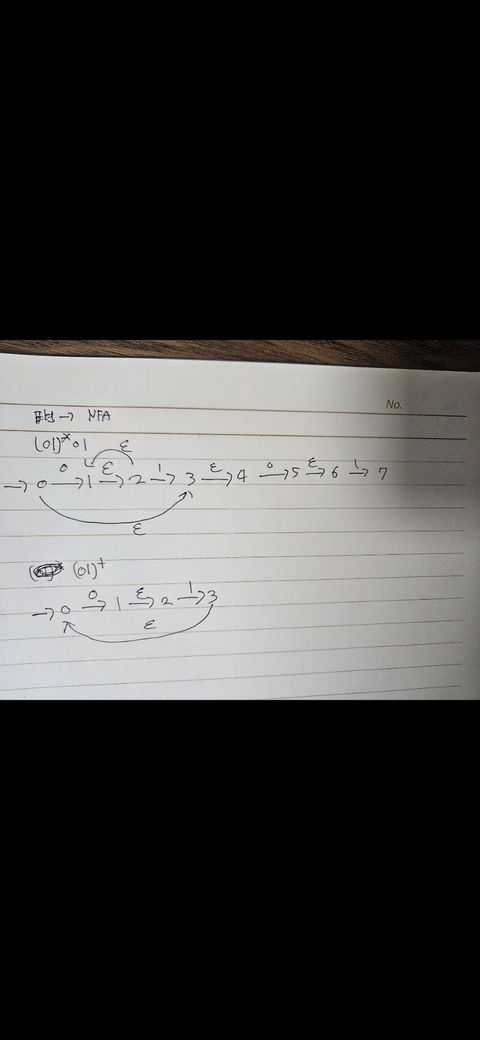 No.
표현 → NFA
(01)*01
ε
→ 0 0→ 1 ε→ 2 1→ 3 ε→ 4 0→ 5 ε→ 6 1→ 7
ε
(01)+
→ 0 0→ 1 ε→ 2 1→ 3
ε